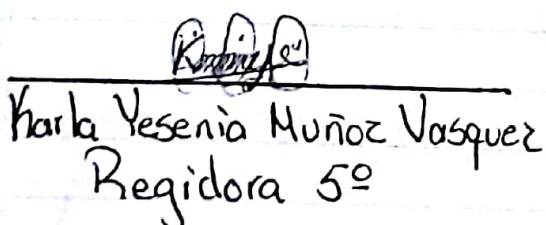 Karla Yesenia Muñoz Vasquez
Regidora 5º